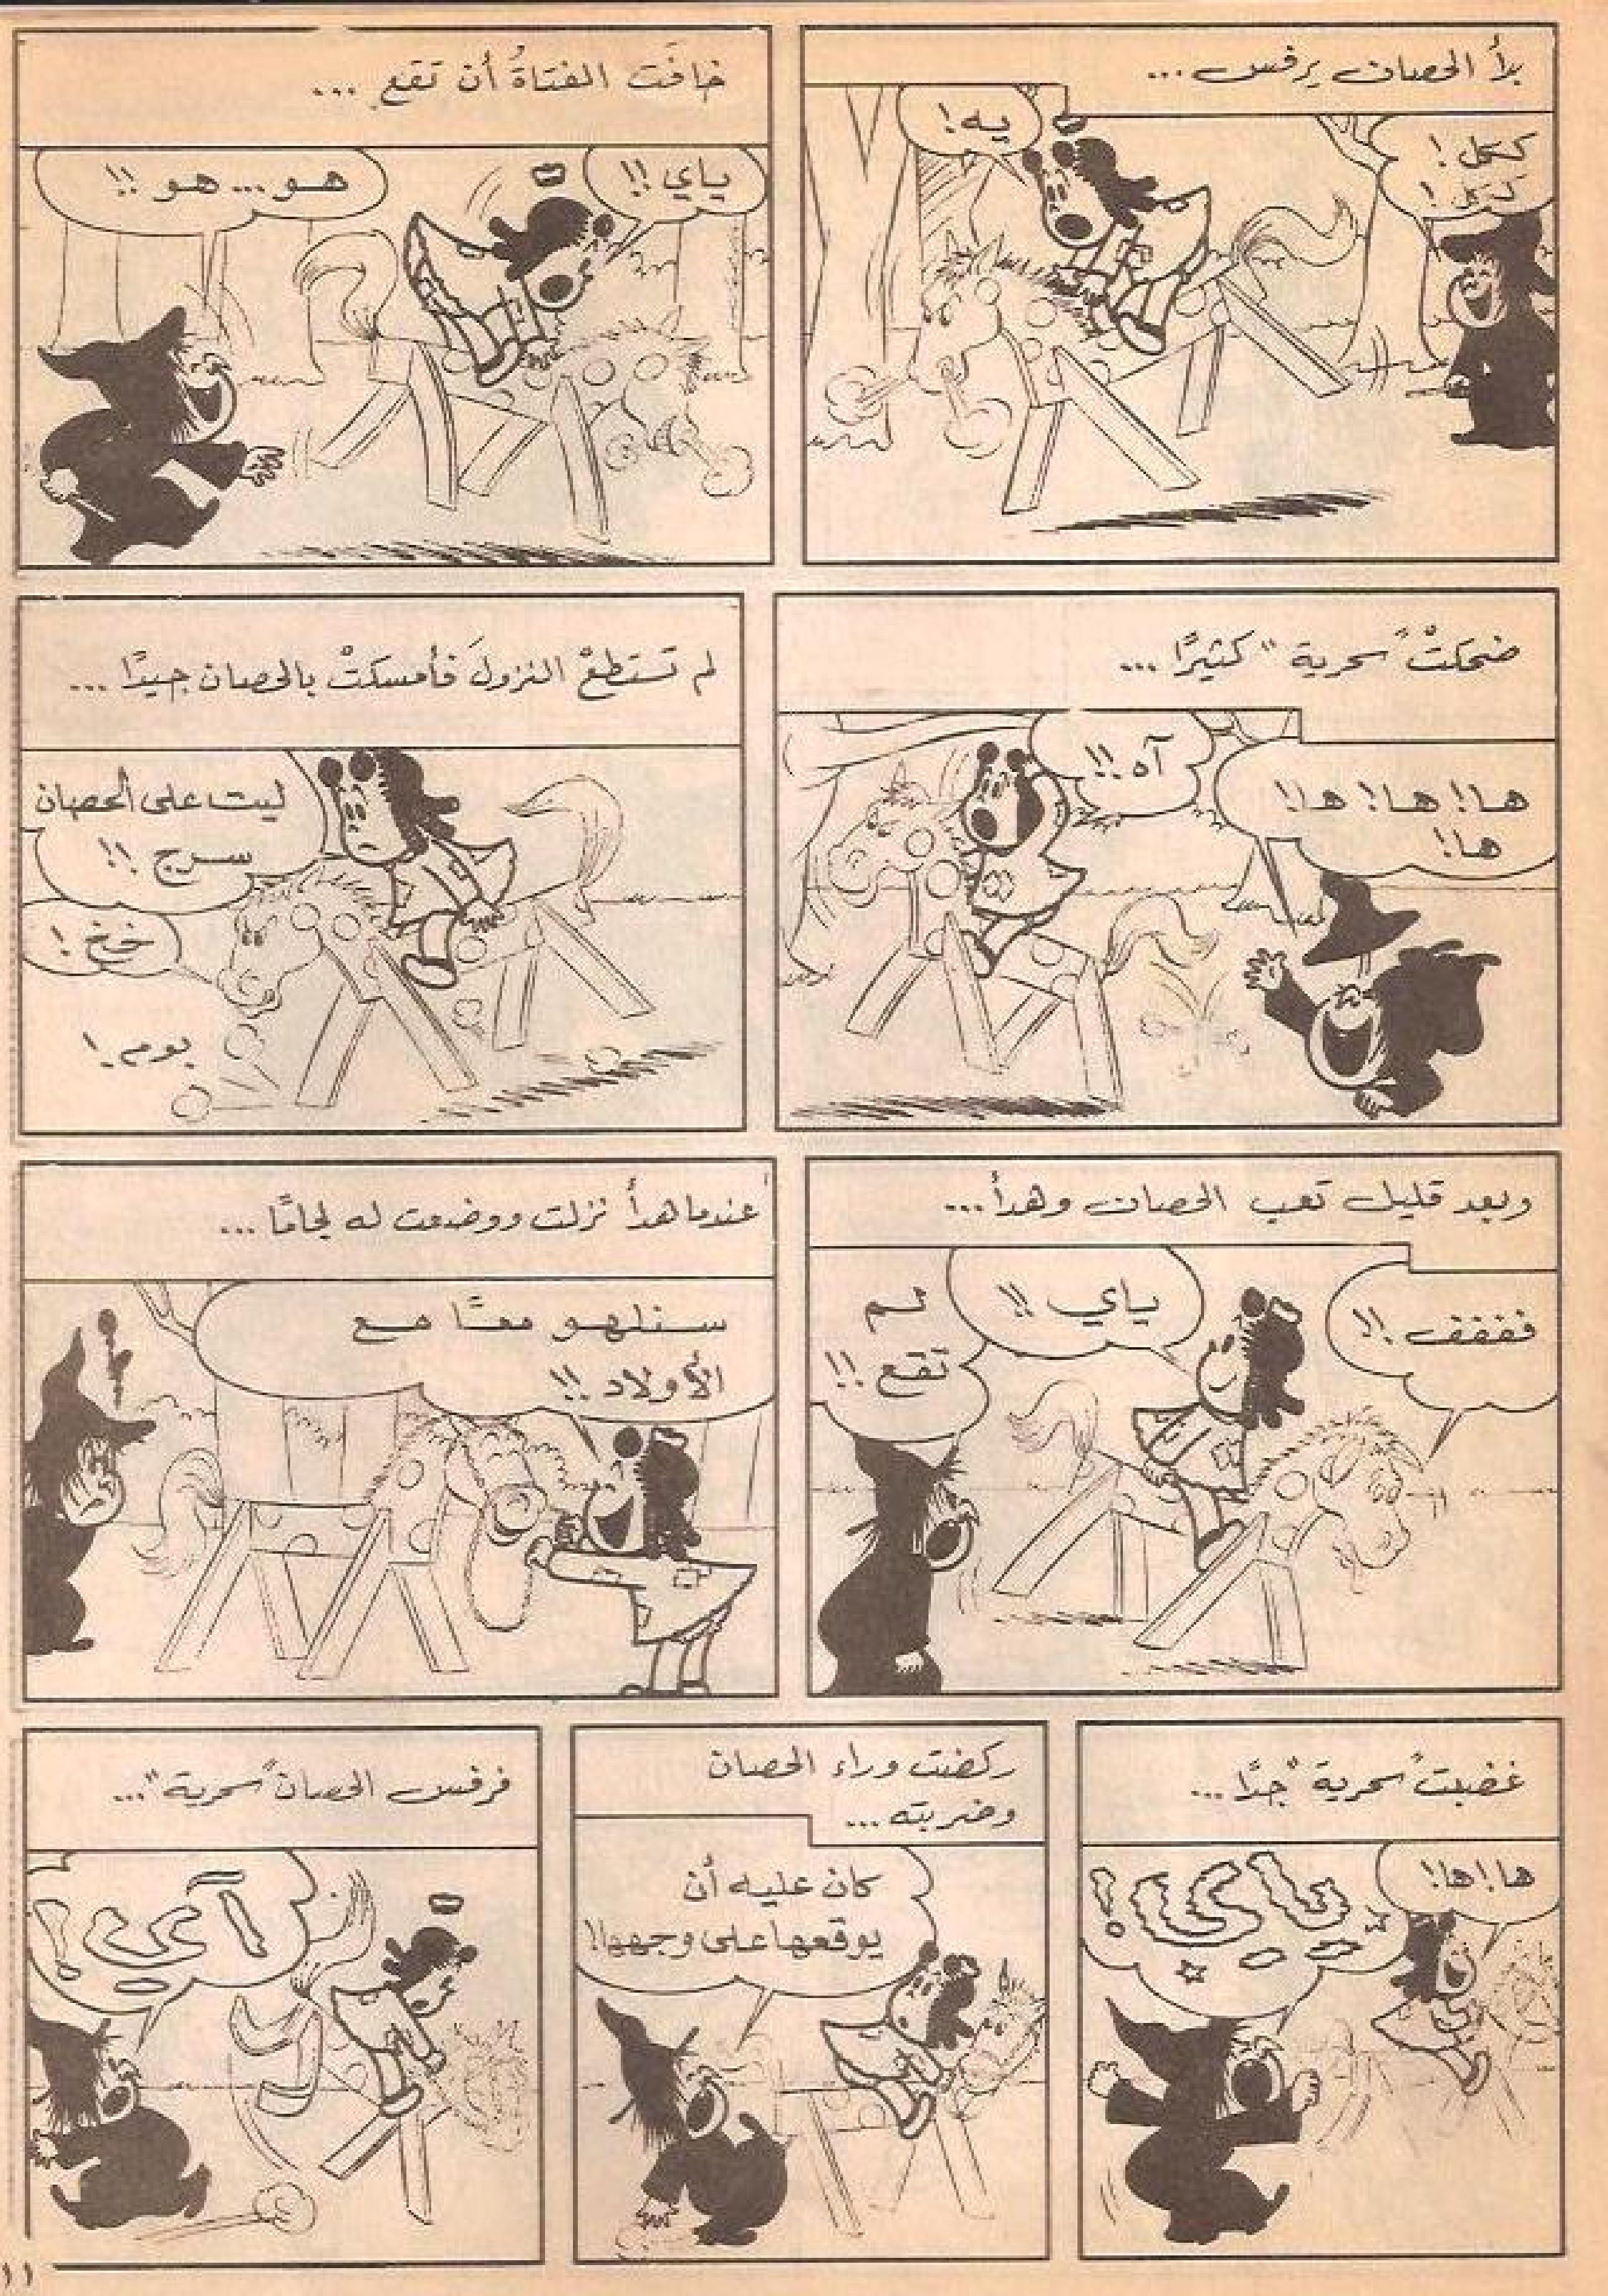 بدأ الحصان يرفس ...
كـَل !
كـَل !
يه !
خافَت الفتاةُ أن تقع ...
ياي !!
هو ... هو !!
ضحكتْ "سحرية" كثيرًا ...
ها ! ها ! ها !!
ها !
آه !!
لم تستطعْ النزولَ فأمسكتْ بالحصان جيدًا ...
ليت على الحصان
سرج !!
خخ !
بوم !
وبعد قليل تعب الحصان وهدأ ...
فففف !!
ياي !!
لم
تقع !!
عندما هدأ نزلت ووضعت له لجامًا ...
سنلهو معًا مع
الأولاد !!
غضبت "سحرية" جدًا ...
ها ! ها !
ياي !
ركضت وراء الحصان
وضربته ...
كان عليه أن
يوقعها على وجهها !
فرفس الحصان "سحرية" ...
آي !
١١